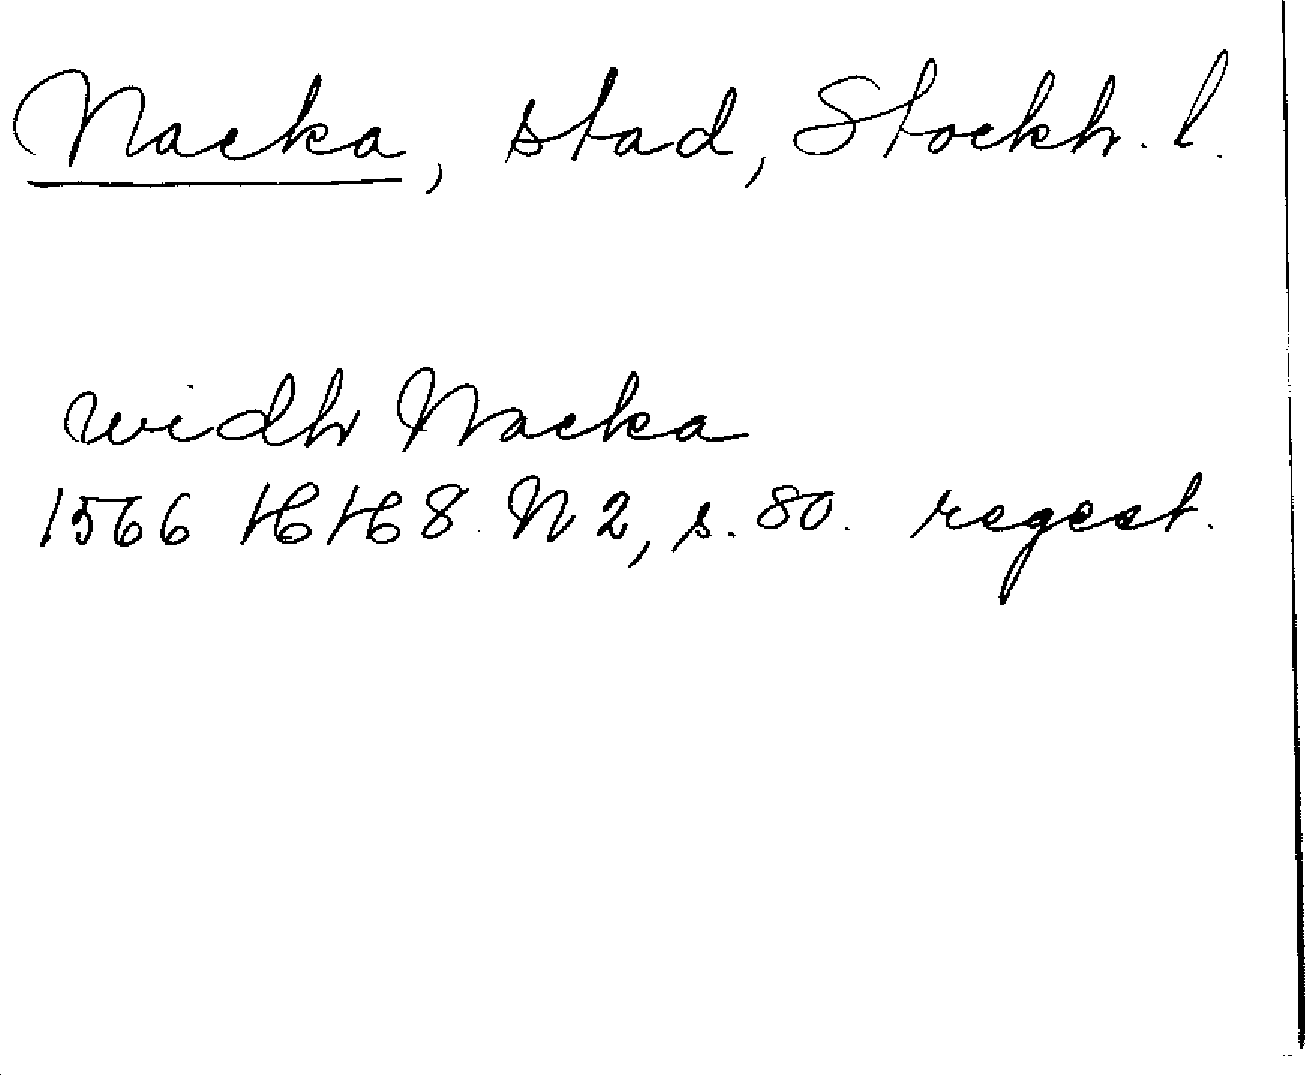 Nacka, stad, Stockh. l.
widh Nacka
1566 HH 8. N 2, s. 80. regest.